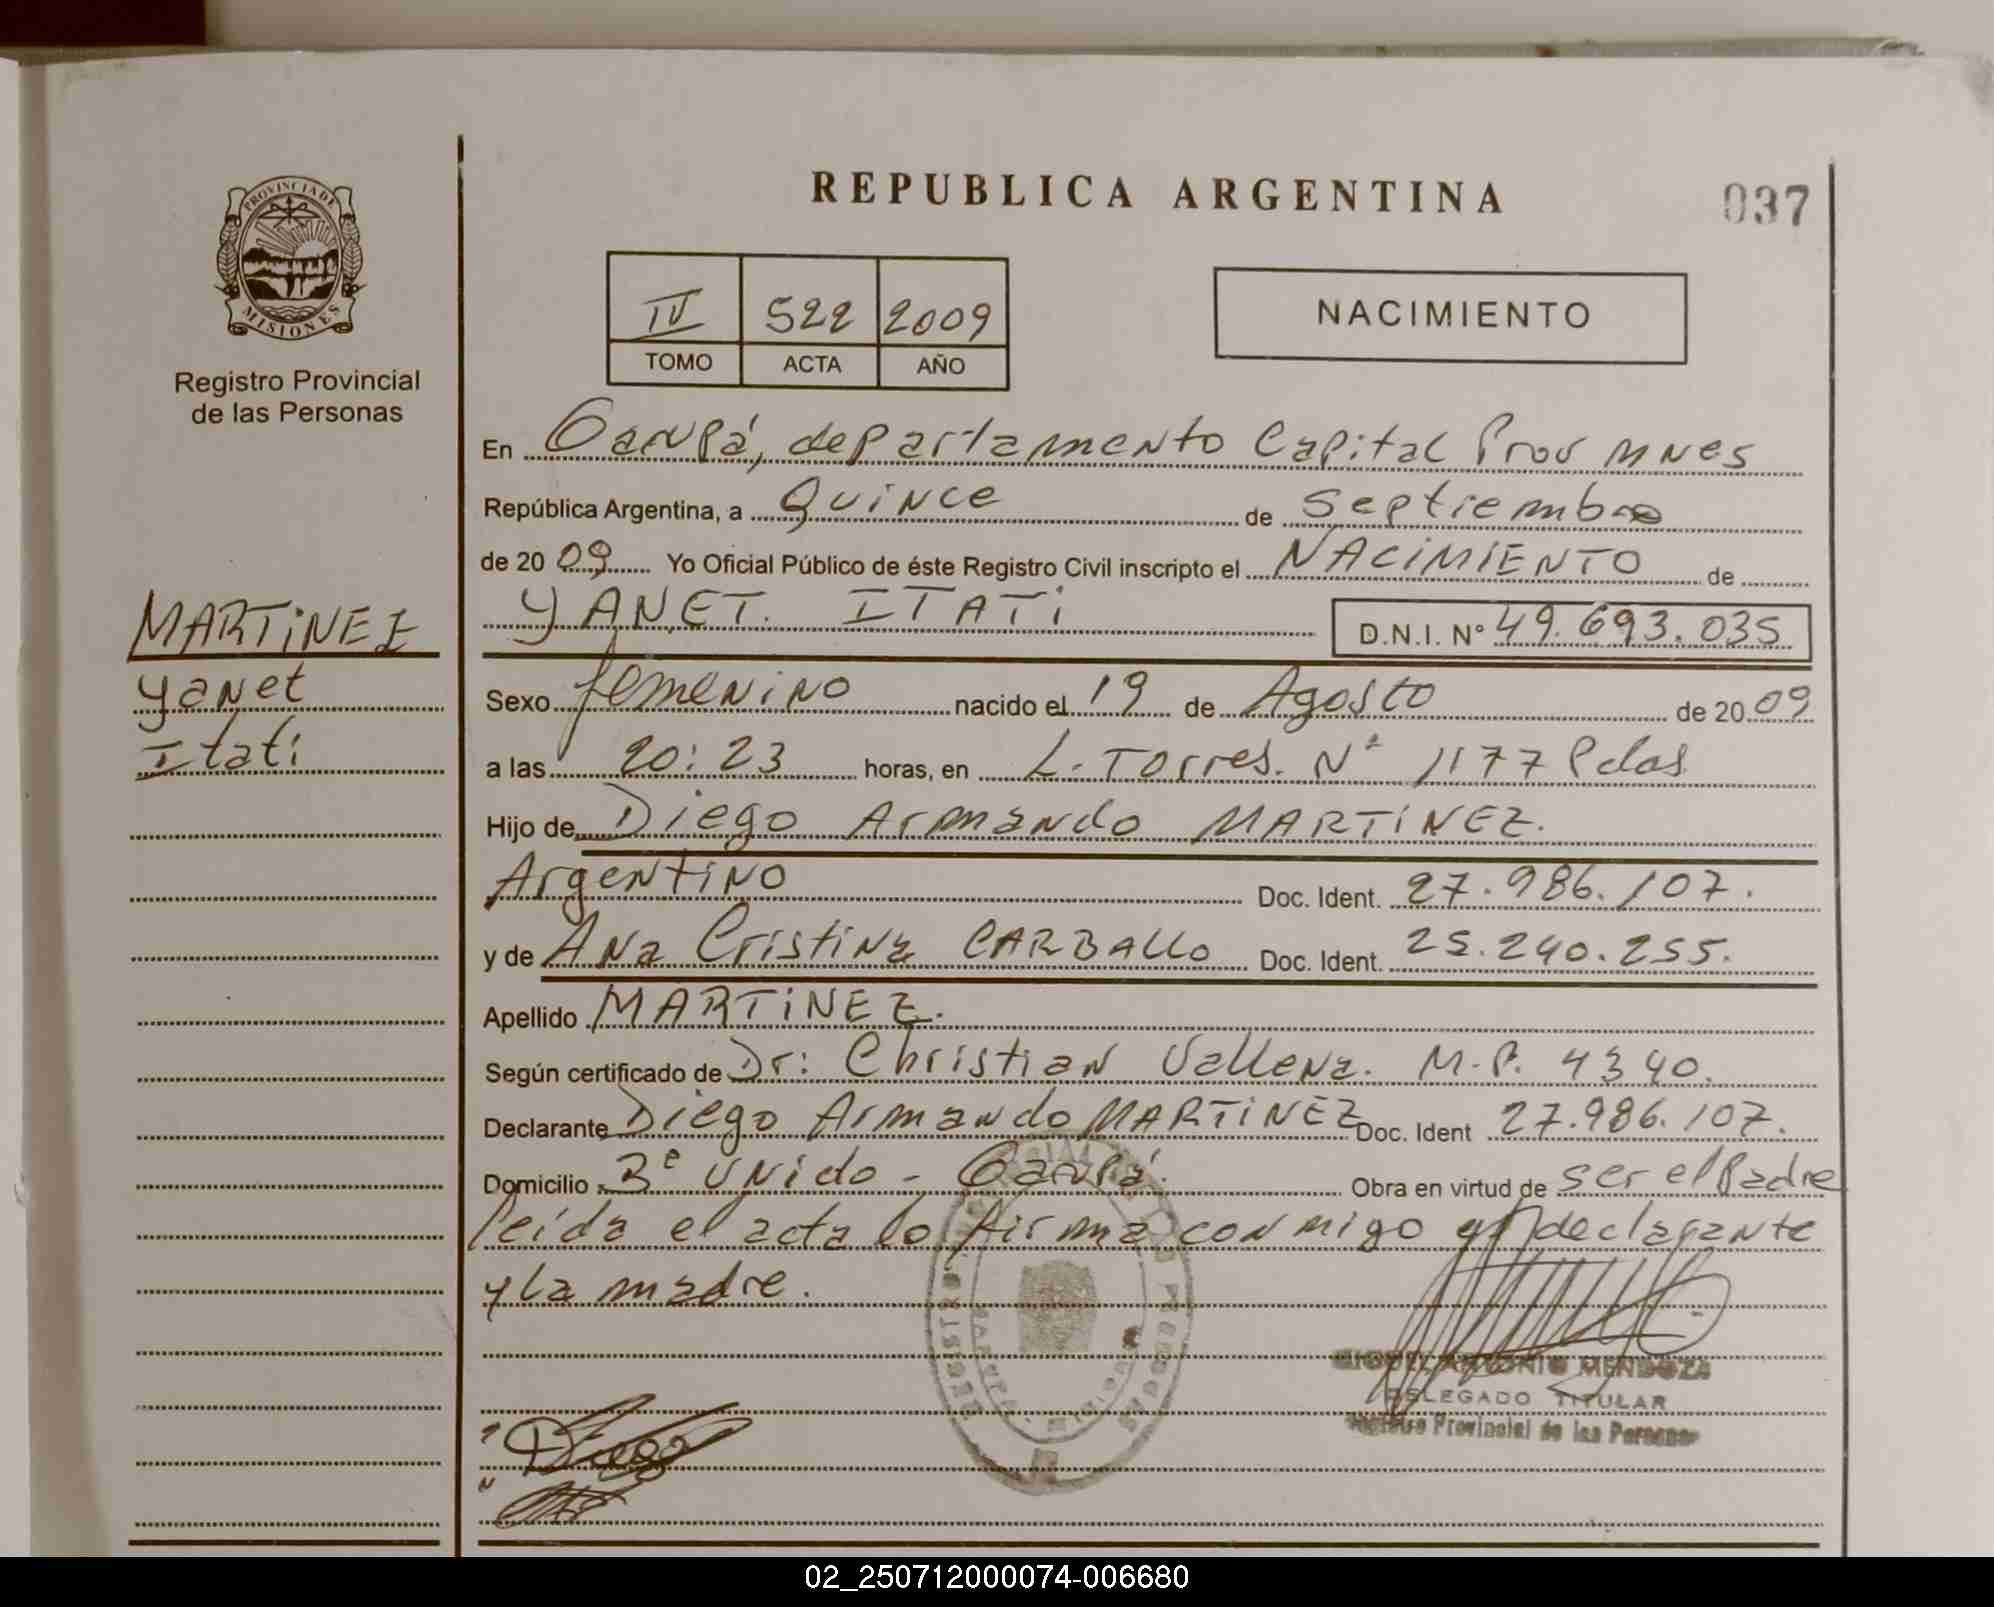 PROVINCIA DE
MISIONES
Registro Provincial
de las Personas
MARTINEZ
Yanet
Itati
REPUBLICA ARGENTINA
037
IV 522 2009
TOMO ACTA AÑO
NACIMIENTO
En Garupá, departamento Capital Prov Mnes
República Argentina, a Quince de Septiembre
de 2009 Yo Oficial Público de éste Registro Civil inscripto el NACIMIENTO de
YANET. ITATI D.N.I. N° 49.693.035
Sexo femenino nacido el 19 de Agosto de 2009
a las 20:23 horas, en L. Torres. N° 1177 Pdas
Hijo de Diego Armando MARTINEZ.
Argentino Doc. Ident. 27.986.107.
y de Ana Cristina CARBALLO Doc. Ident. 25.240.255.
Apellido MARTINEZ.
Según certificado de Dr: Christian Vallena. M.P. 4340.
Declarante Diego Armando MARTINEZ Doc. Ident 27.986.107.
Domicilio B° Unido - Garupá. Obra en virtud de ser el Padre
leída el acta lo firma conmigo el declarante
y la madre.
MIGUEL ANTONIO MENDOZA
DELEGADO TITULAR
Registro Provincial de las Personas
Diego
02_250712000074-006680